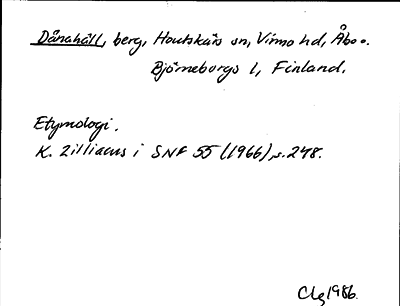 Dånahäll, berg, Houtskärs sn, Virmo hd, Åbo o.
Björneborgs l, Finland.
Etymologi.
K. Zilliacus i SNF 55 (1966), s. 248.
Clg 1986.